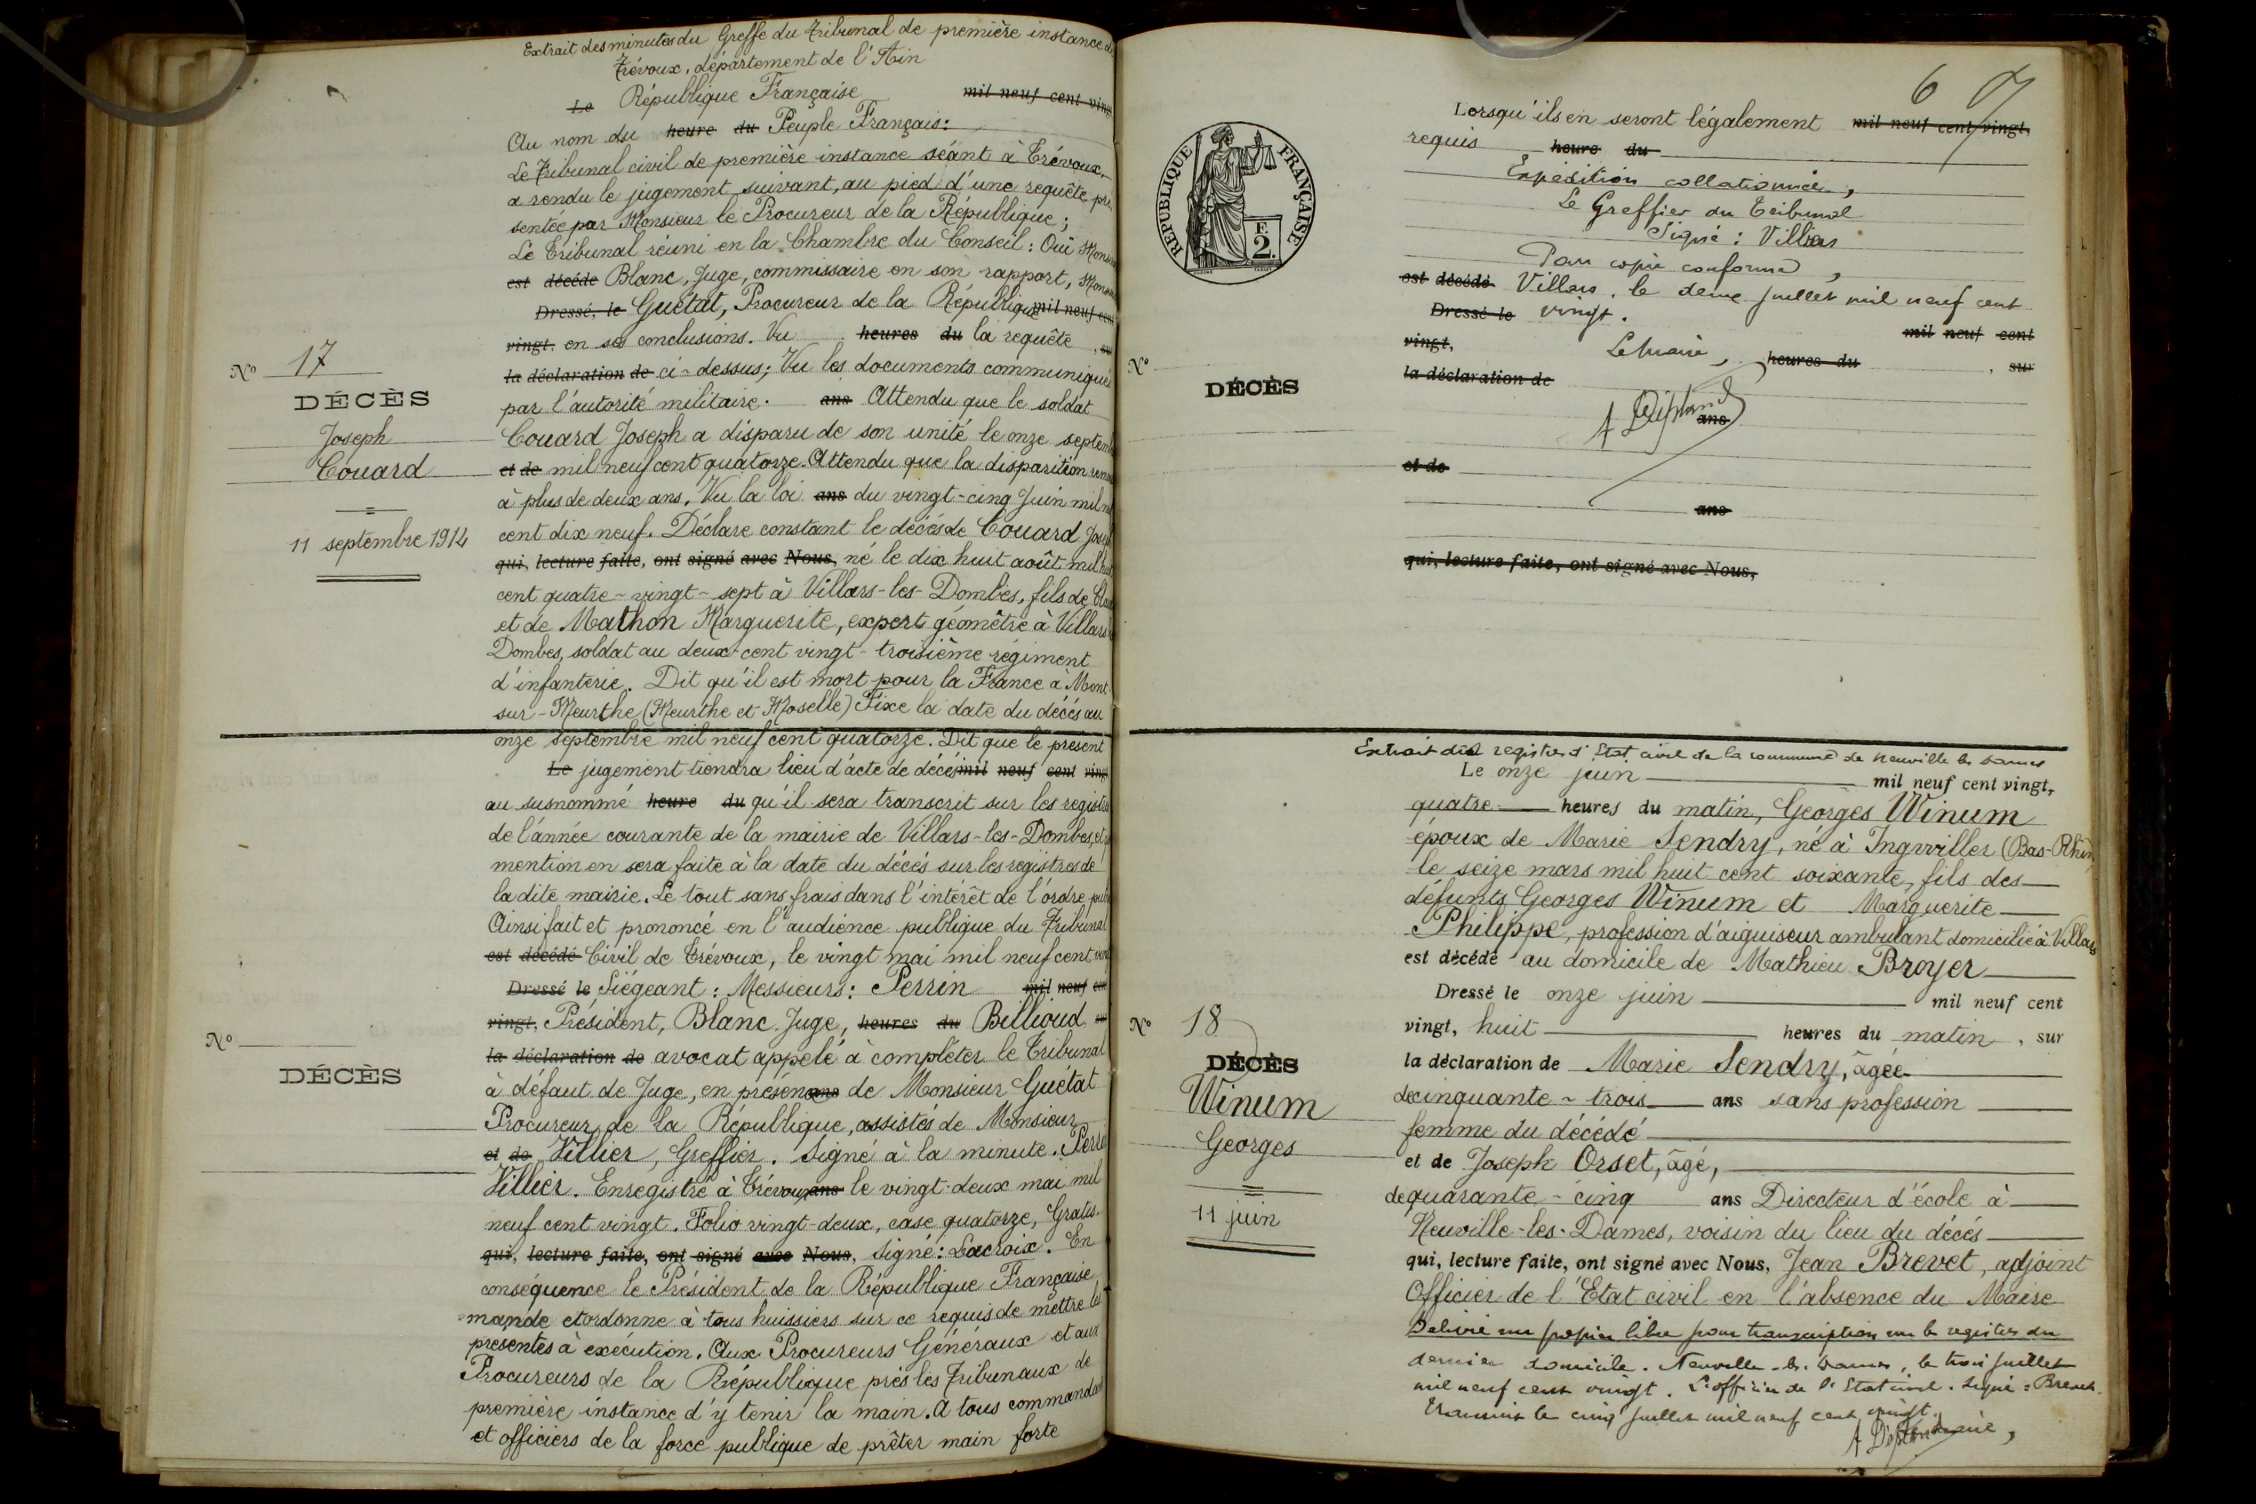 Extrait des minutes du Greffe du Tribunal de première instance de
Trévoux, département de l'Ain
Le République Française mil neuf cent vingt
Au nom du heure du Peuple Français:
Le Tribunal civil de première instance séant à Trévoux,
a rendu le jugement suivant, au pied d'une requête pré
sentée par Monsieur le Procureur de la République;
Le Tribunal réuni en la Chambre du Conseil: Ouï Monsieur
est décédé Blanc, Juge, commissaire en son rapport, Monsieur
Dressé, le Guétat, Procureur de la République mil neuf cent
vingt, en ses conclusions. Vu heures du la requête , sur
la déclaration de ci-dessus; Vu les documents communiqués
par l'autorité militaire. ans Attendu que le soldat
Couard Joseph a disparu de son unité le onze septembre
et de mil neuf cent quatorze. Attendu que la disparition remonte
à plus de deux ans. Vu la loi ans du vingt-cinq Juin mil neuf
cent dix neuf. Déclare constant le décès de Couard Joseph
qui, lecture faite, ont signé avec Nous, né le dix huit août mil huit
cent quatre-vingt-sept à Villars-les-Dombes, fils de
et de Mathon Marguerite, expert géomètre à Villars
Dombes, soldat au deux-cent vingt-troisième régiment
d'infanterie. Dit qu'il est mort pour la France à Mont-
sur-Meurthe (Meurthe et Moselle) Fixe la date du décès au
onze septembre mil neuf cent quatorze. Dit que le présent
Le jugement tiendra lieu d'acte de décès mil neuf cent vingt
au susnommé heure du qu'il sera transcrit sur les registres
de l'année courante de la mairie de Villars-les-Dombes, et
mention en sera faite à la date du décès sur les registres de
la dite mairie. Le tout sans frais dans l'intérêt de l'ordre public
Ainsi fait et prononcé en l'audience publique du Tribunal
est décédé Civil de Trévoux, le vingt mai mil neuf cent vingt
Dressé le Siégeant: Messieurs: Perrin mil neuf cent
vingt, Président, Blanc Juge, heures du Billioud sur
la déclaration de avocat appelé à compléter le Tribunal
à défaut de Juge, en présence ans de Monsieur Guétat
Procureur de la République, assistés de Monsieur
et de Villier, Greffier. Signé à la minute. Perrin
Villier. Enregistré à Trévoux ans le vingt-deux mai mil
neuf cent vingt. Folio vingt-deux, case quatorze, Gratis.
qui, lecture faite, ont signé avec Nous, Signé: Lacroix. En
conséquence le Président de la République Française
mande et ordonne à tous huissiers sur ce requis de mettre les
présentes à exécution. Aux Procureurs Généraux et aux
Procureurs de la République près les Tribunaux de
première instance d'y tenir la main. A tous commandants
et officiers de la force publique de prêter main forte
No 17
DÉCÈS
Joseph
Couard
11 septembre 1914
No
DÉCÈS
6
Lorsqu'ils en seront légalement mil neuf cent vingt,
requis heure du
Expédition collationnée,
Le Greffier du Tribunal
Signé: Villier
Pour copie conforme,
est décédé Villars, le deux juillet mil neuf cent
Dressé le vingt. mil neuf cent
vingt, Le maire, heures du , sur
la déclaration de
ans
et de
ans
qui, lecture faite, ont signé avec Nous,
RÉPUBLIQUE FRANÇAISE
F.
2.
No
DÉCÈS
Extrait des registres d'Etat civil de la commune de Neuville les Dames
Le onze juin mil neuf cent vingt,
quatre heures du matin, Georges Winum
époux de Marie Sendry, né à Ingwiller (Bas-Rhin)
le seize mars mil huit cent soixante, fils des
défunts Georges Winum et Marguerite
Philippe, profession d'aiguiseur ambulant domicilié à Villars
est décédé au domicile de Mathieu Broyer
Dressé le onze juin mil neuf cent
vingt, huit heures du matin, sur
la déclaration de Marie Sendry, âgée
de cinquante-trois ans sans profession
femme du décédé
et de Joseph Orset, âgé,
de quarante-cinq ans Directeur d'école à
Neuville-les-Dames, voisin du lieu du décès
qui, lecture faite, ont signé avec Nous, Jean Brevet, adjoint
Officier de l'Etat civil en l'absence du Maire
Délivré sur papier libre pour transcription sur les registres du
dernier domicile. Neuville-les-Dames, le trois juillet
mil neuf cent vingt. L'officier de l'Etat civil. Signé: Brevet.
Transcrit le cinq juillet mil neuf cent vingt.
No 18
DÉCÈS
Winum
Georges
11 juin